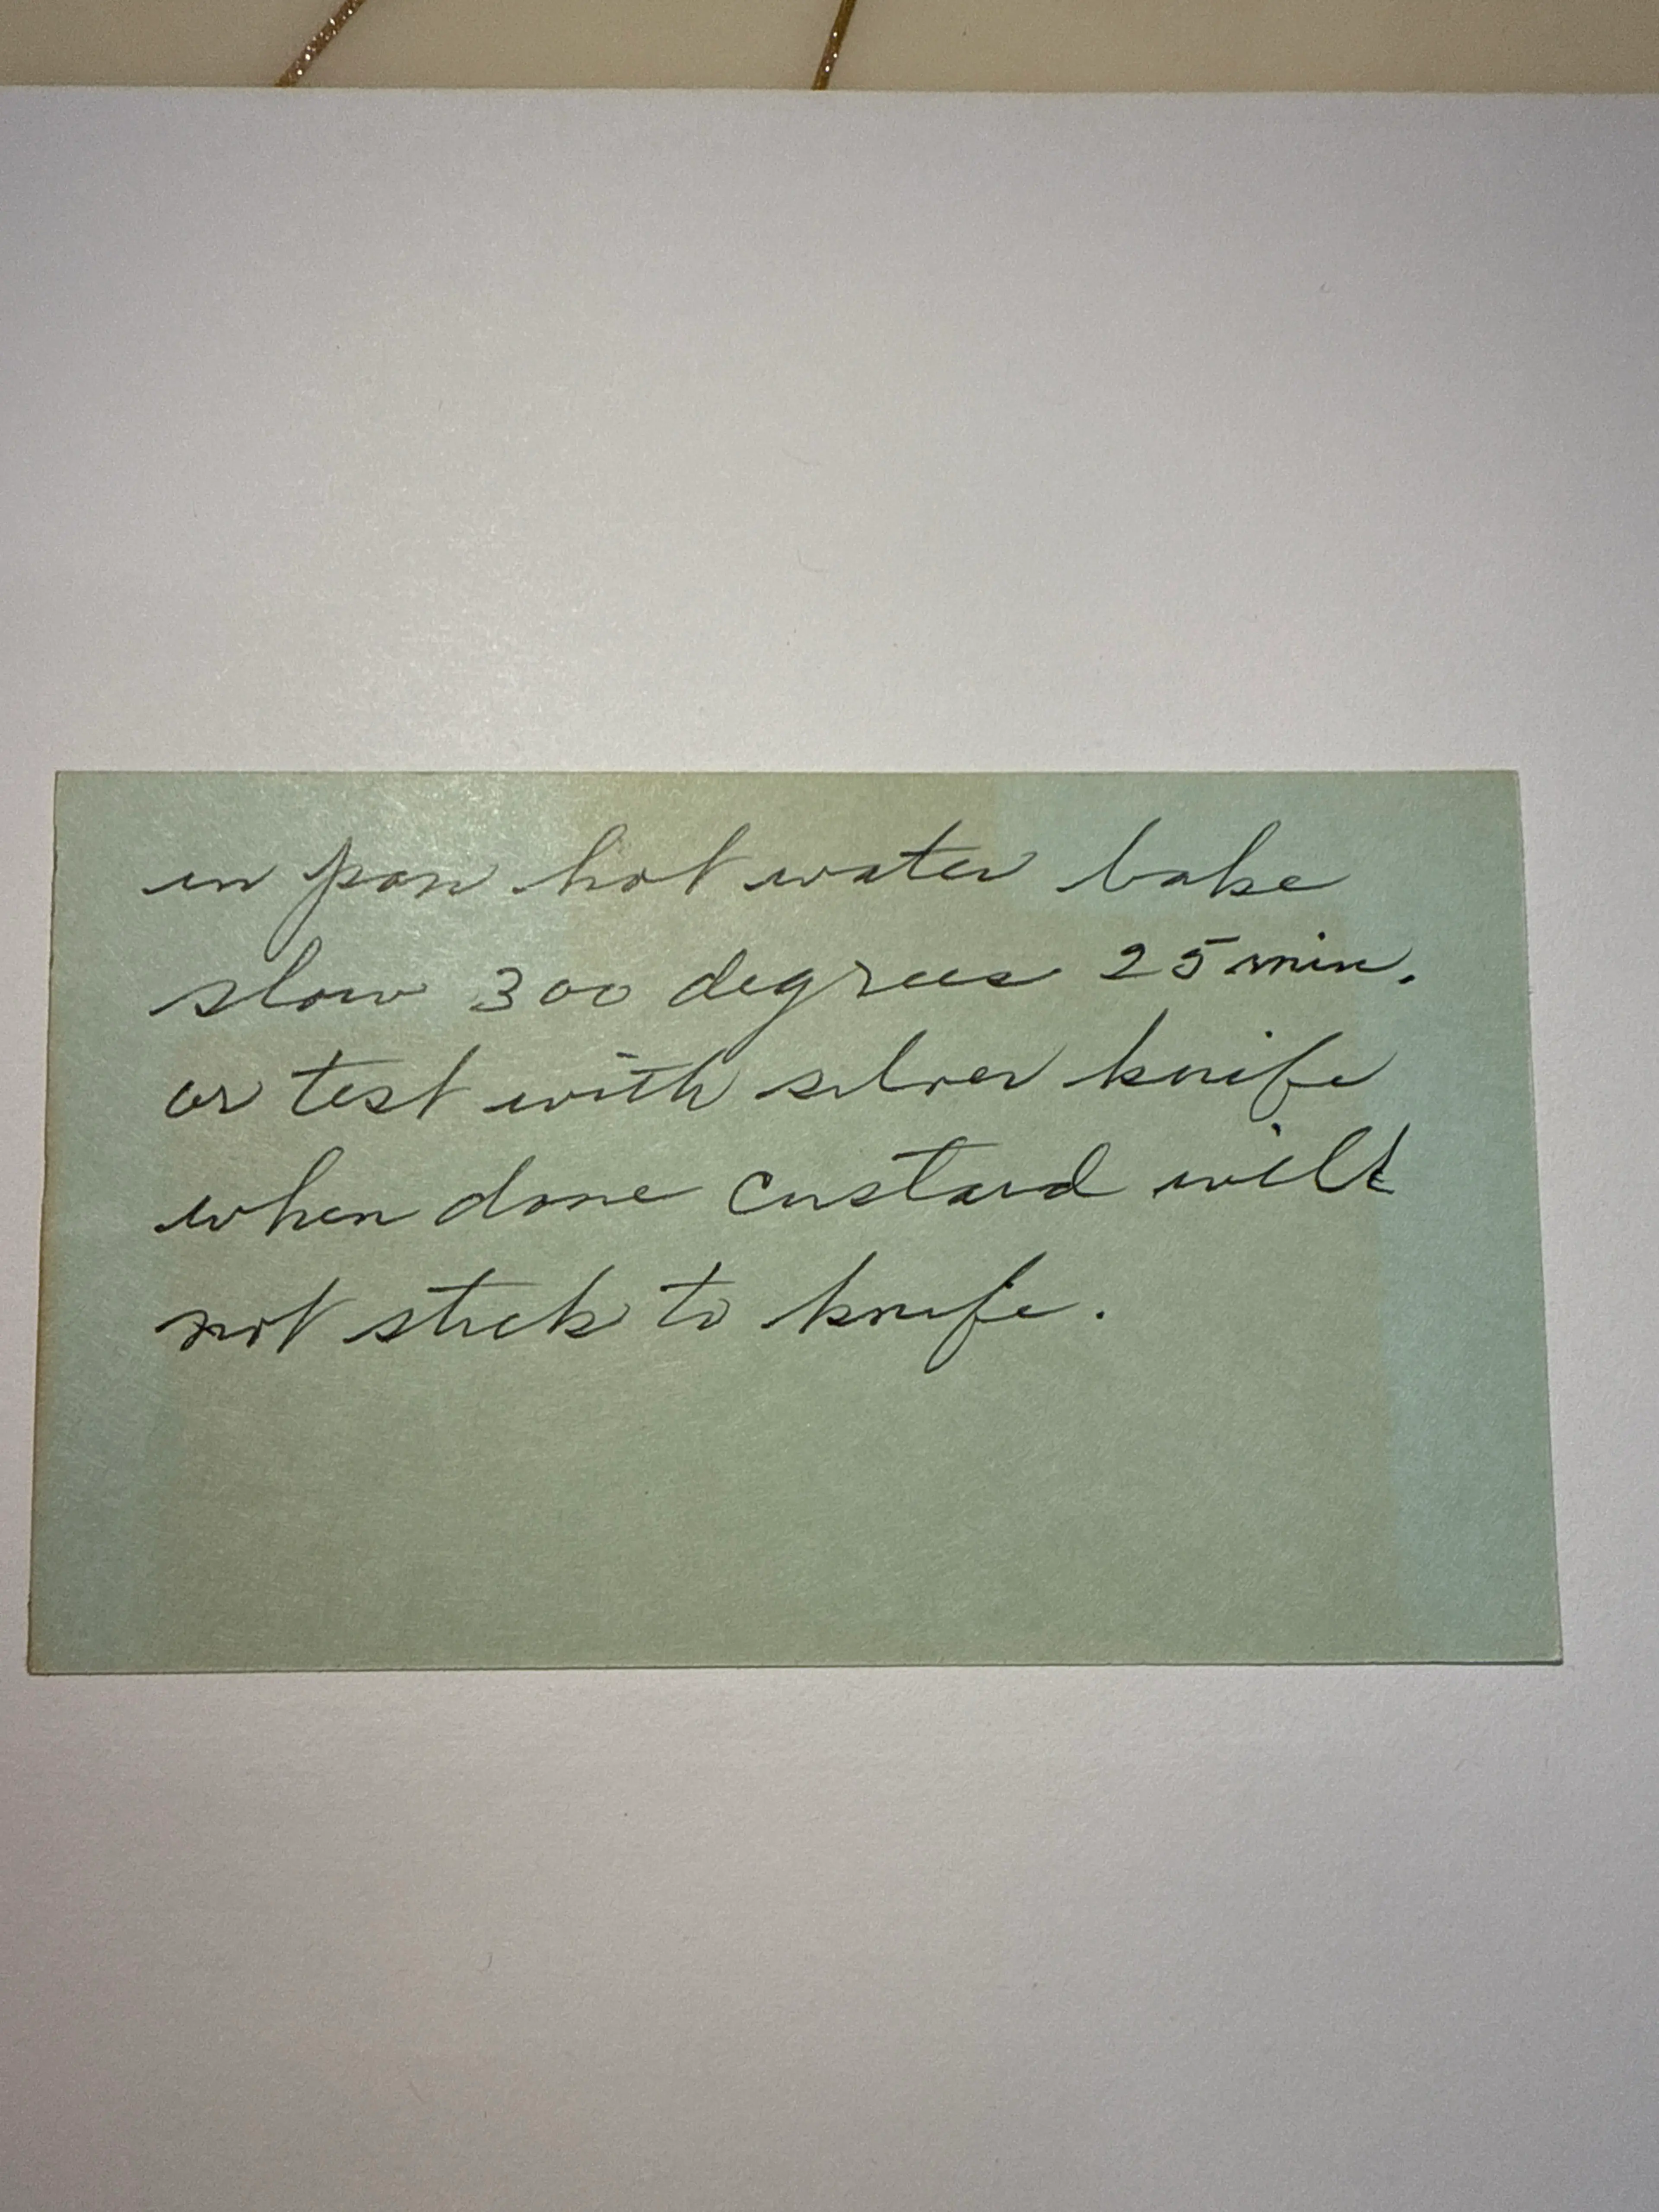 in pan hot water bake
slow 300 degrees 25 min.
or test with silver knife
when done custard will
not stick to knife.